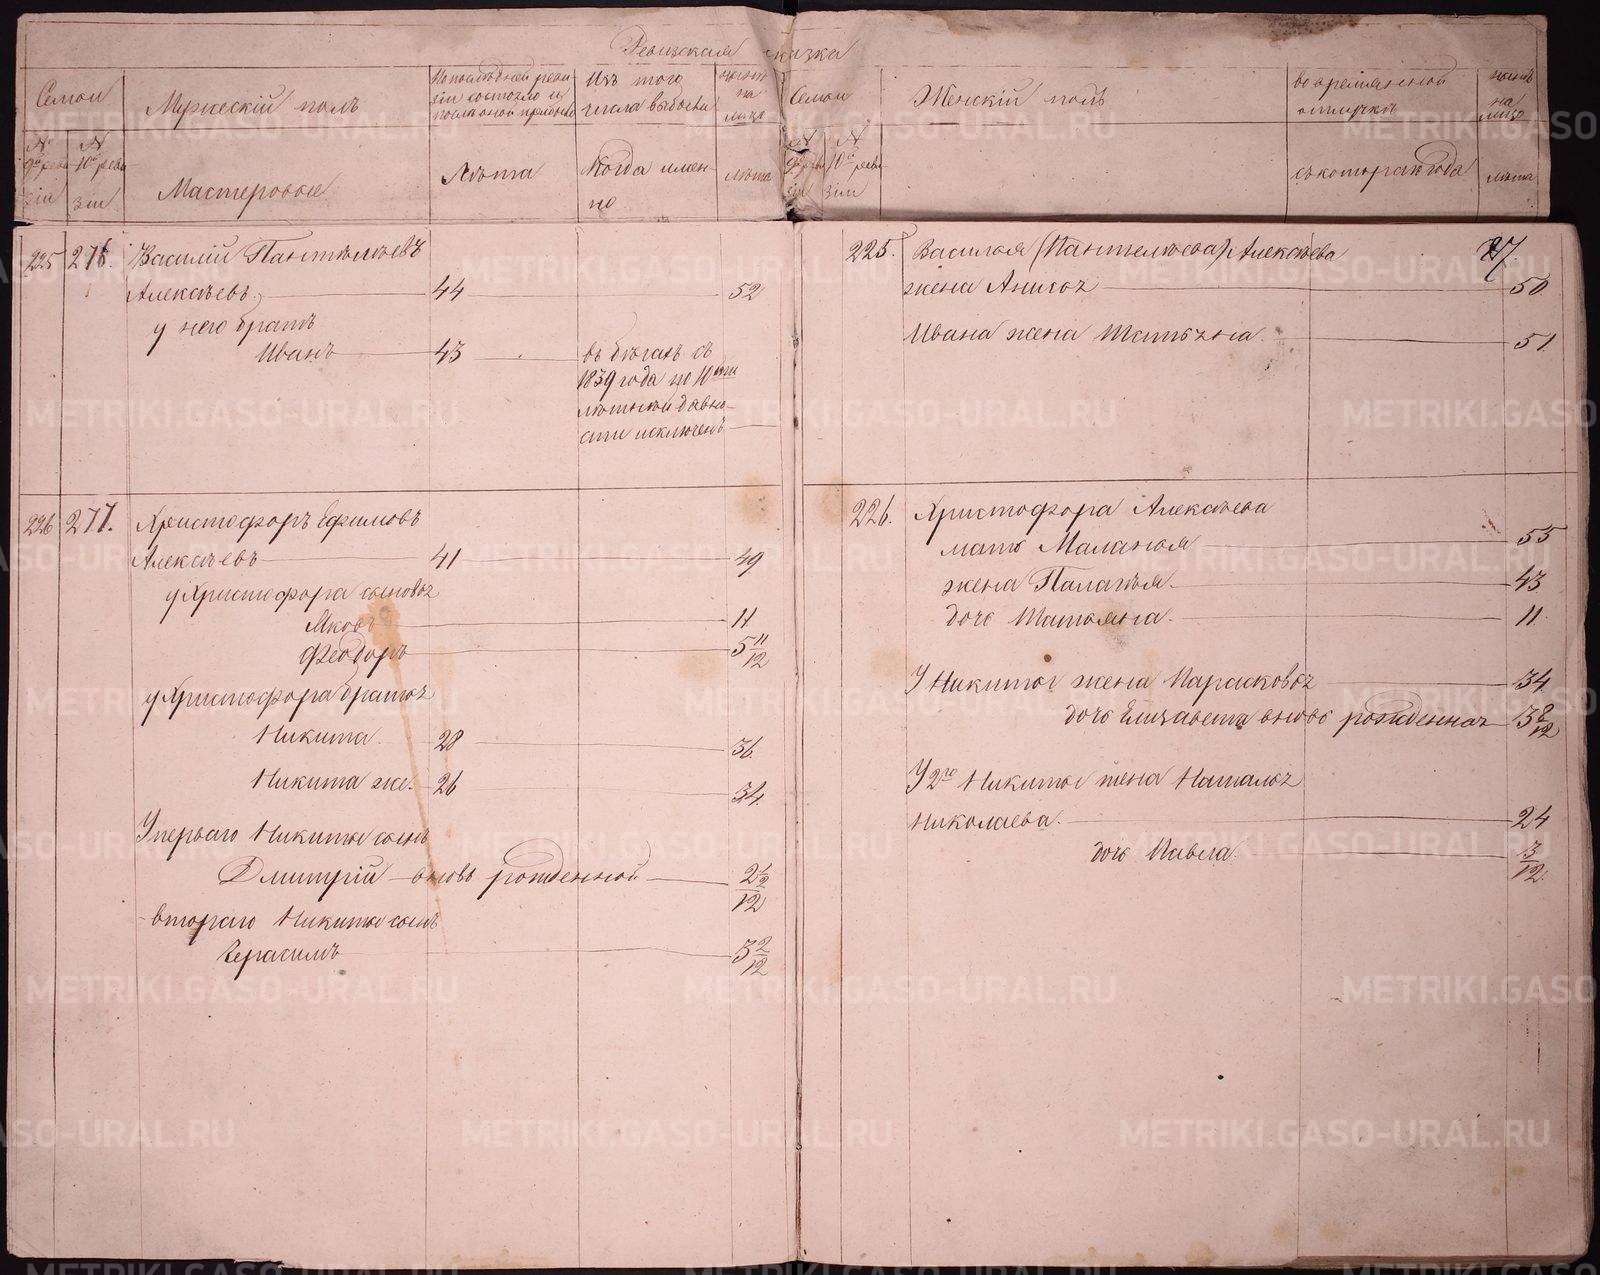 Ревизская сказка
Семьи
№ 9й ревизіи
№ 10й ревизіи
Мужескій полъ
Мастеровые
По последней ревизіи состояло и
Лѣта
Изъ того числа выбыли
Когда именно
нынѣ на лицо
лѣта
Семьи
№ 9й ревизіи
№ 10й ревизіи
Женскій полъ
во временной отлучкѣ
съ котораго года
нынѣ на лицо
лѣта
225 276. Василій Пантелѣевъ
Алексѣевъ. 44 52
у него братъ
Иванъ 43 въ бѣгахъ съ
1839 года по 10ти
лѣтней давно-
сти исключенъ
226 277. Христофоръ Ефимовъ
Алексѣевъ 41 49
у Христофора сыновья
Яковъ 11
Феодоръ 5 11/12
у Христофора братья
Никита. 28 36.
Никита же. 26 34.
У перваго Никиты сынъ
Дмитрій вновь рожденной 2 1/2/12
втораго Никиты сынъ
Герасимъ 3 2/12
27.
225. Василья (Пантелѣева) Алексѣева
жена Анисья 50.
Ивана жена Татьяна. 51.
226. Христофора Алексѣева
мать Маланья 55
жена Палагѣя. 43
дочь Татьяна. 11.
У Никиты жена Парасковья 34.
дочь Елизавета вновь рожденная 3 8/12
У 2го Никиты жена Наталья
Николаева. 24
дочь Павла. 3/12.
METRIKI.GASO-URAL.RU